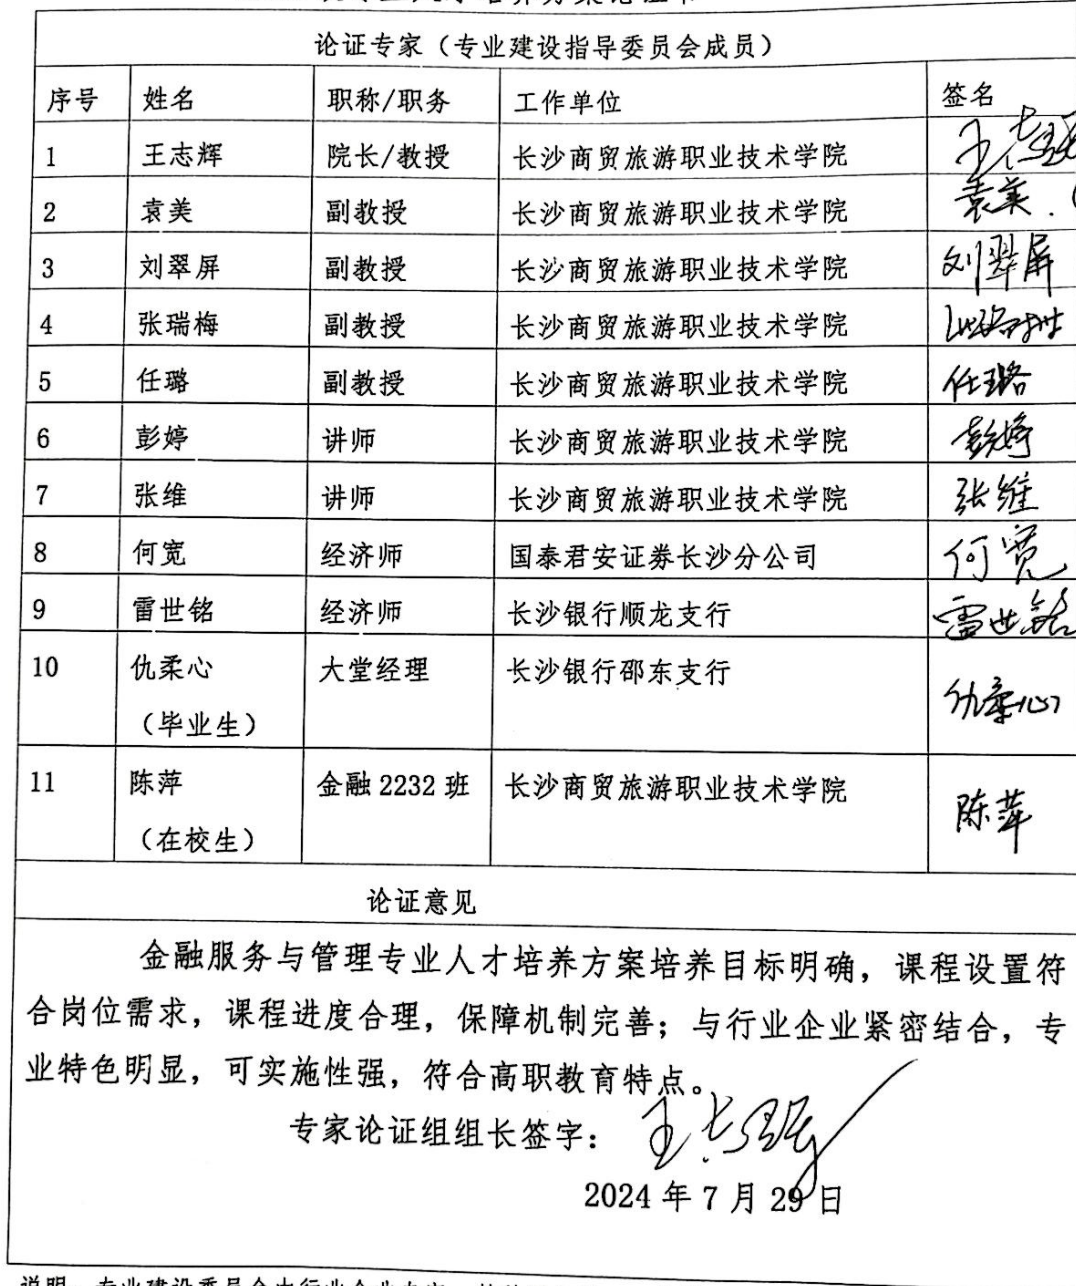 论证专家（专业建设指导委员会成员）
序号 姓名 职称/职务 工作单位 签名
1 王志辉 院长/教授 长沙商贸旅游职业技术学院
2 袁美 副教授 长沙商贸旅游职业技术学院 袁美
3 刘翠屏 副教授 长沙商贸旅游职业技术学院 刘翠屏
4 张瑞梅 副教授 长沙商贸旅游职业技术学院
5 任璐 副教授 长沙商贸旅游职业技术学院 任璐
6 彭婷 讲师 长沙商贸旅游职业技术学院 彭婷
7 张维 讲师 长沙商贸旅游职业技术学院 张维
8 何宽 经济师 国泰君安证券长沙分公司 何宽
9 雷世铭 经济师 长沙银行顺龙支行 雷世铭
10 仇柔心 大堂经理 长沙银行邵东支行 仇柔心
（毕业生）
11 陈萍 金融2232班 长沙商贸旅游职业技术学院 陈萍
（在校生）
论证意见
金融服务与管理专业人才培养方案培养目标明确，课程设置符
合岗位需求，课程进度合理，保障机制完善；与行业企业紧密结合，专
业特色明显，可实施性强，符合高职教育特点。
专家论证组组长签字：
2024年7月29日